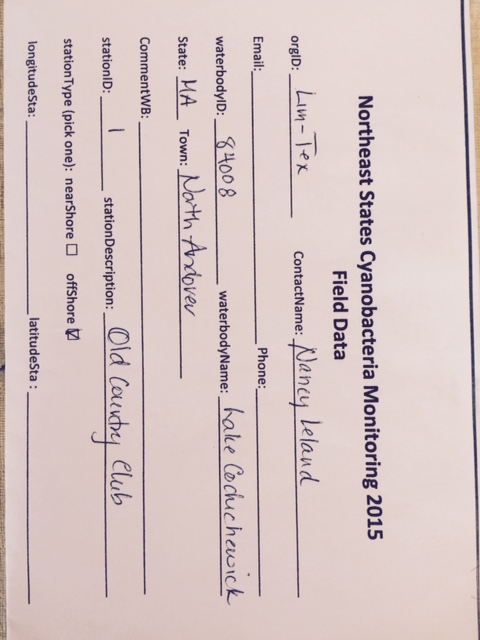 Northeast States Cyanobacteria Monitoring 2015
Field Data
orgID: Lim-Tex ContactName: Nancy Leland
Email: Phone:
waterbodyID: 84008 waterbodyName: Lake Cochichewick
State: MA Town: North Andover
CommentWB:
stationID: 1 stationDescription: Old Country Club
stationType (pick one): nearShore ☐ offShore ☑
longitudeSta: latitudeSta :